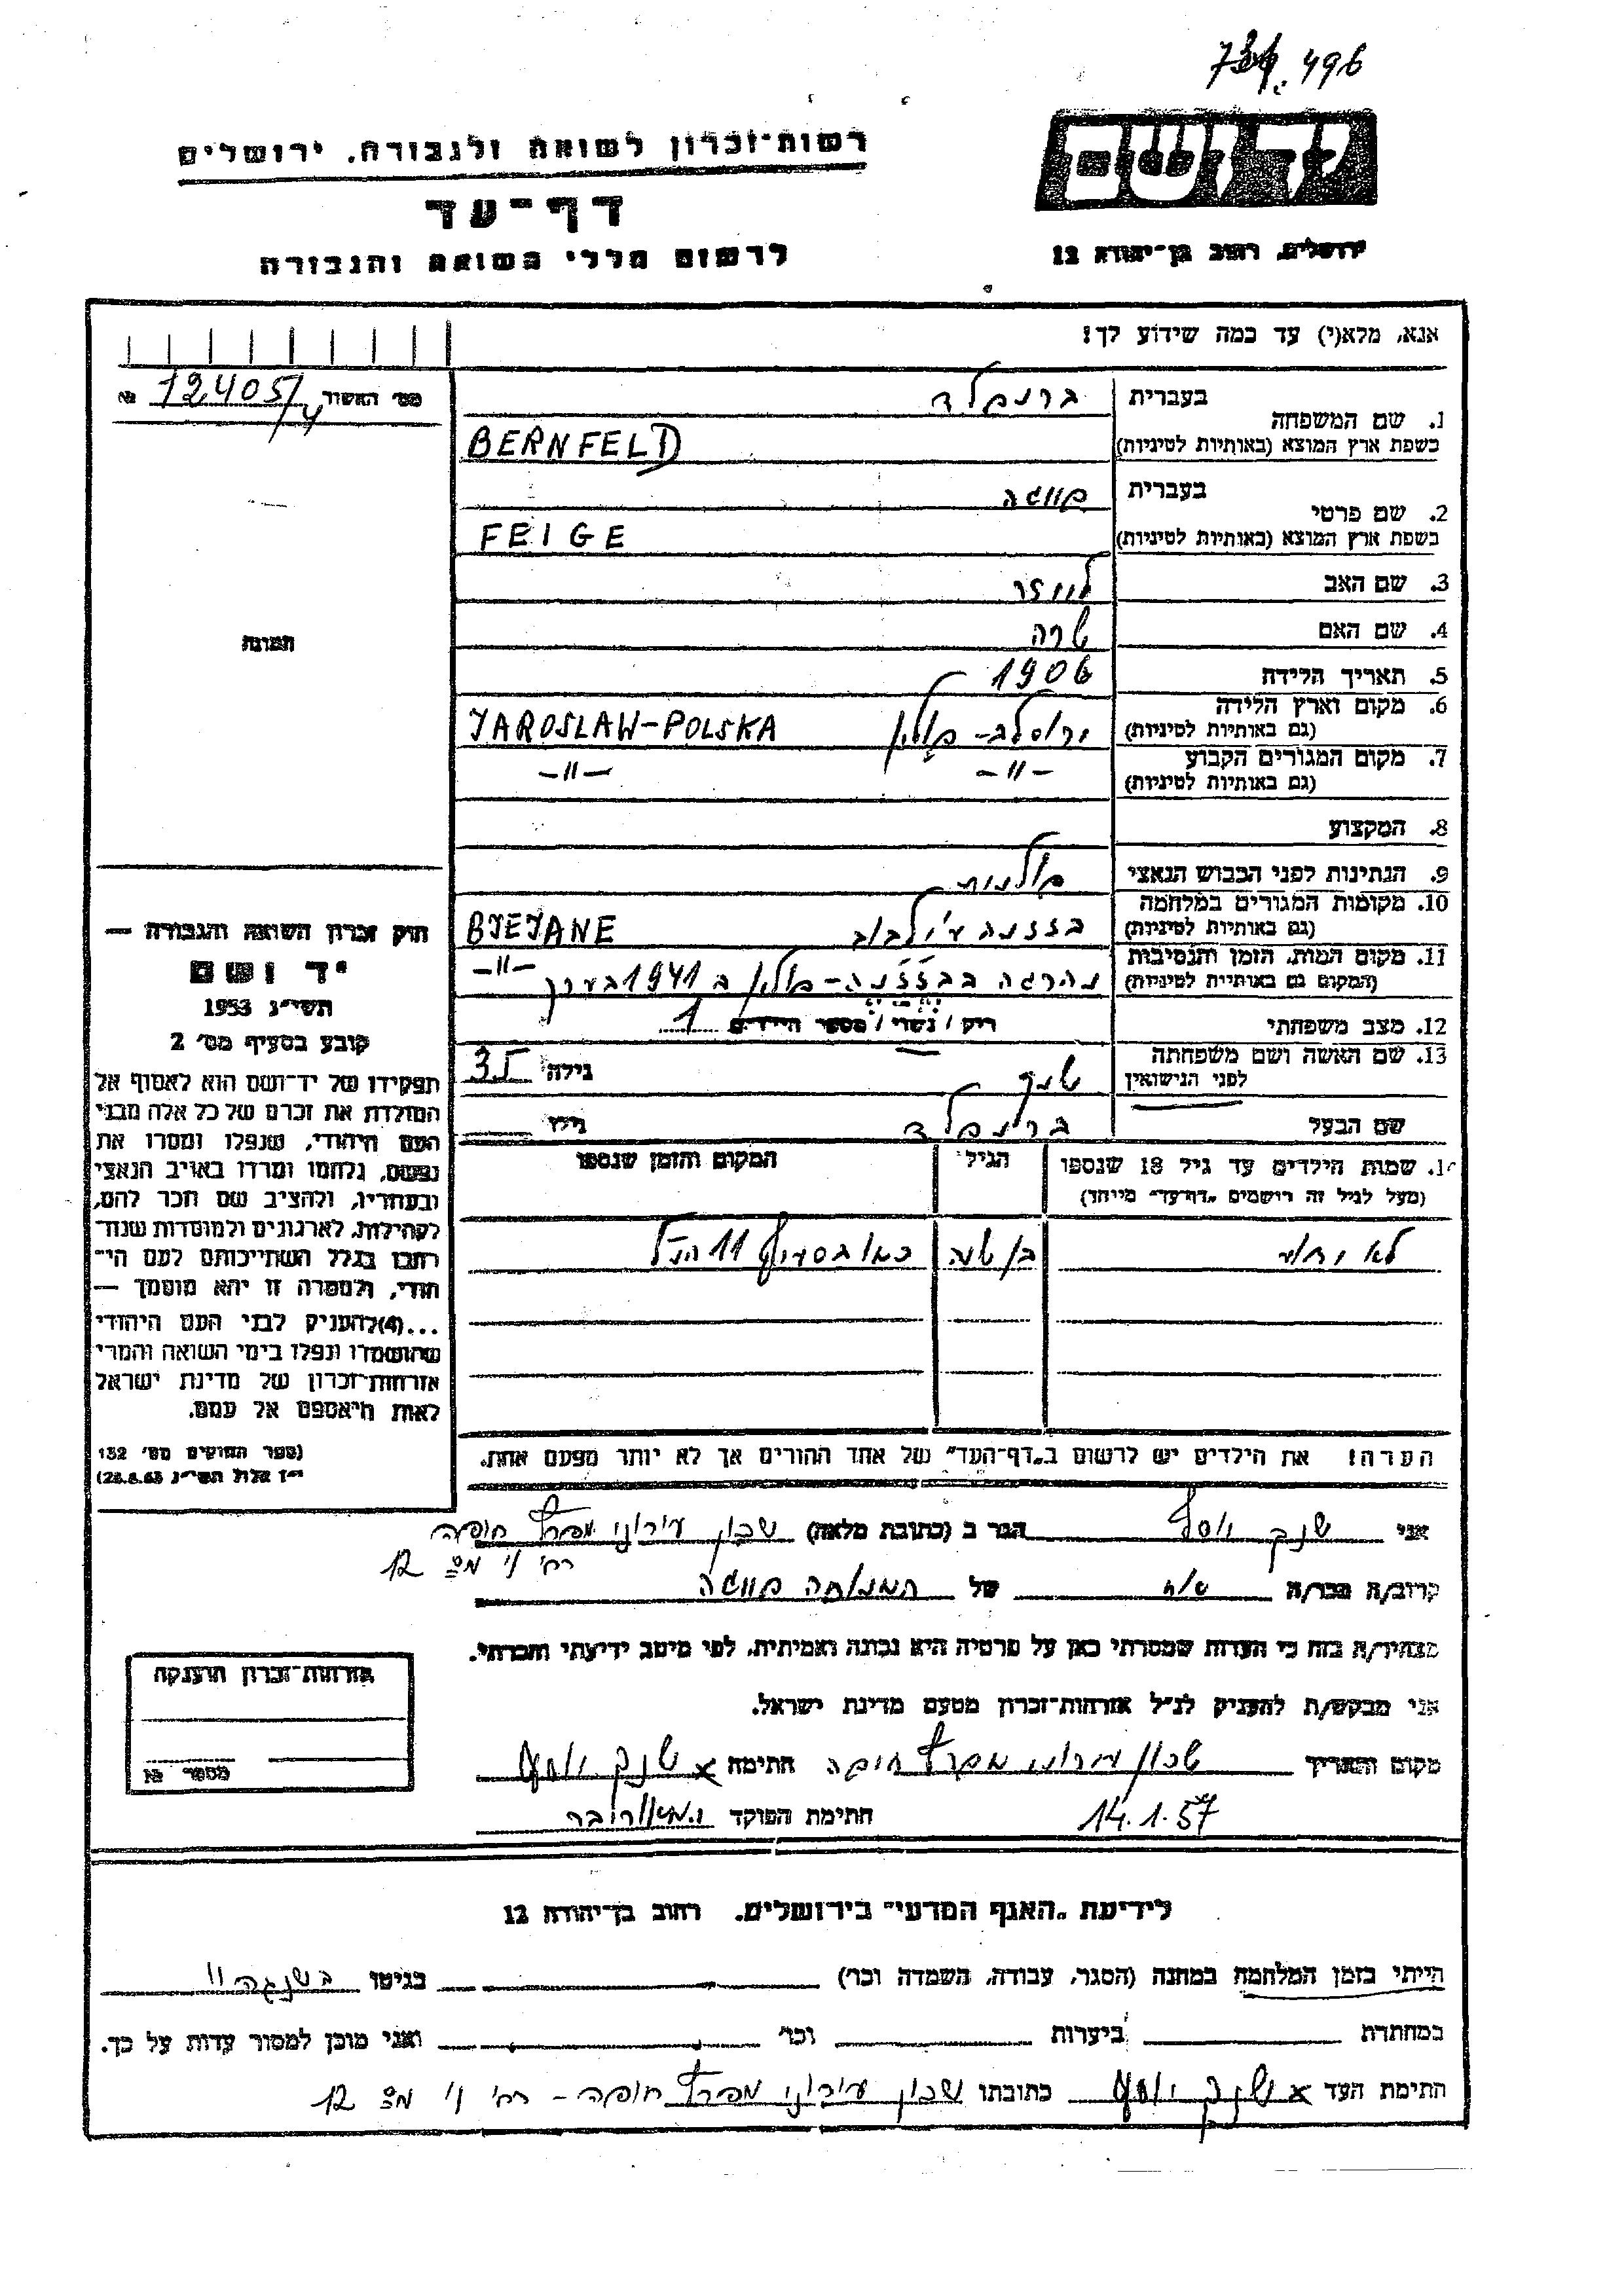 496
רשות־זכרון לשואה ולגבורה, ירושלים
יד ושם
דף־עד
לרשום חללי השואה והגבורה
ירושלים, רחוב בן־יהודה 12
אנא, מלא(י) עד כמה שידוע לך!
מס׳ האשור 12405/4 №
1. שם המשפחה בעברית ברנפלד
בשפת ארץ המוצא (באותיות לטיניות) BERNFELD
2. שם פרטי בעברית פייגה
בשפת ארץ המוצא (באותיות לטיניות) FEIGE
3. שם האב לייזר
4. שם האם שרה
5. תאריך הלידה 1906
6. מקום וארץ הלידה ירוסלב - פולין JAROSLAW-POLSKA
(גם באותיות לטיניות)
7. מקום המגורים הקבוע -"- -"-
(גם באותיות לטיניות)
8. המקצוע
9. הנתינות לפני הכבוש הנאצי פולנית
10. מקומות המגורים במלחמה בז׳ז׳נה ע״י לבוב BJEJANE
(גם באותיות לטיניות)
11. מקום המות, הזמן והנסיבות נהרגה בבז׳ז׳נה - פולין ב 1941 בערך -"-
(המקום גם באותיות לטיניות)
12. מצב משפחתי רוק / נשוי / מספר הילדים 1
13. שם האשה ושם משפחתה לפני הנישואין שנק גילה 35
שם הבעל ברנפלד גילו
14. שמות הילדים עד גיל 18 שנספו הגיל המקום והזמן שנספו
(מעל לגיל זה רושמים "דף־עד" מיוחד)
לא ידוע בן שנה כמו בסעיף 11 הנ"ל
הערה! את הילדים יש לרשום ב"דף־העד" של אחד ההורים אך לא יותר מפעם אחת.
תמונה
חוק זכרון השואה והגבורה —
יד ושם
תשי״ג 1953
קובע בסעיף מס׳ 2
תפקידו של יד־ושם הוא לאסוף אל
המולדת את זכרם של כל אלה מבני
העם היהודי, שנפלו ומסרו את
נפשם, נלחמו ומרדו באויב הנאצי
ובעוזריו, ולהציב שם וזכר להם,
לקהילות, לארגונים ולמוסדות שנח־
רבו בגלל השתייכותם לעם היהו־
הודי, ולמטרה זו יהא מוסמך —
...(4) להעניק לבני העם היהודי
שהושמדו ונפלו בימי השואה והמרי
אזרחות־זכרון של מדינת ישראל
לאות היאספם אל עמם.
(ספר החוקים מס׳ 132
י״ז אלול תשי״ג 28.8.53)
אני שנק יוסף הגר ב (כתובת מלאה) שכון עירוני מפרץ חיפה
רח׳ נ׳ מס 12
קרוב/ה מכר/ה אח של המנוחה פייגה
מצהיר/ה בזה כי העדות שמסרתי כאן על פרטיה היא נכונה ואמיתית, לפי מיטב ידיעתי והכרתי.
אני מבקש/ת להעניק לנ״ל אזרחות־זכרון מטעם מדינת ישראל.
מקום ותאריך שכון עירוני מפרץ חיפה חתימה x שנק יוסף
14.1.57 חתימת הפוקד
אזרחות־זכרון הוענקה
מספר №
לידיעת "האגף המדעי" בירושלים, רחוב בן־יהודה 12
הייתי בזמן המלחמה במחנה (הסגר, עבודה, השמדה וכו׳) בגיטו
במחתרת ביערות וכו׳ ואני מוכן למסור עדות על כך.
חתימת העד x שנק יוסף כתובתו שכון עירוני מפרץ חיפה - רח׳ נ׳ מס 12